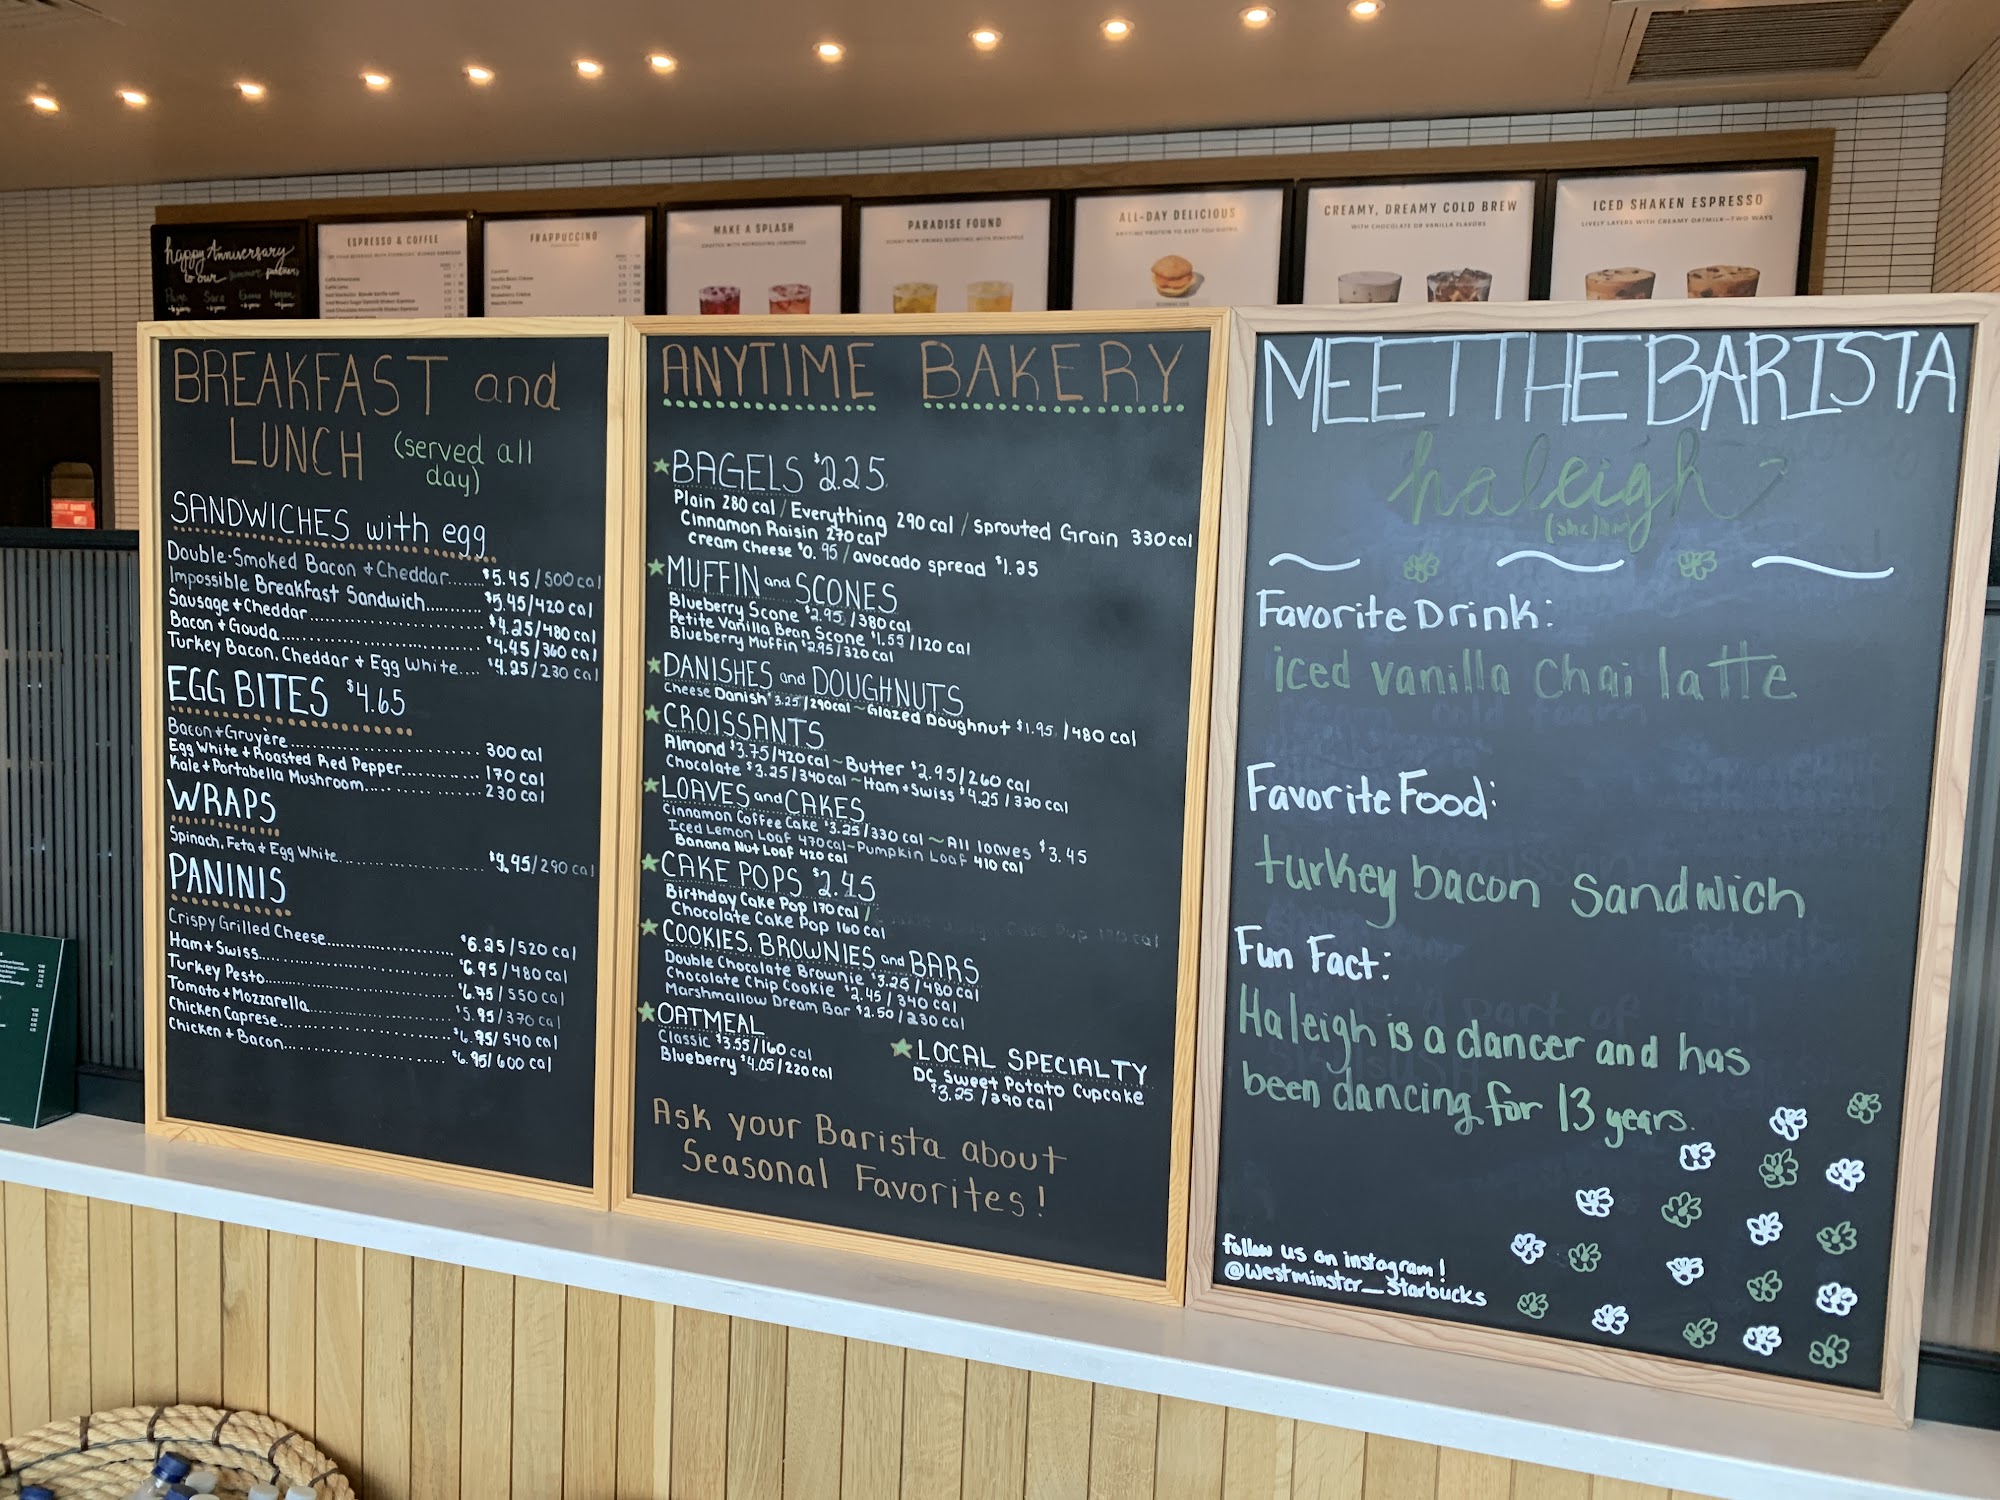 happy Anniversary
to our summer partners
ESPRESSO & COFFEE
FRAPPUCCINO
MAKE A SPLASH
PARADISE FOUND
ALL-DAY DELICIOUS
ANYTIME PROTEIN TO KEEP YOU GOING
CREAMY, DREAMY COLD BREW
WITH CHOCOLATE OR VANILLA FLAVORS
ICED SHAKEN ESPRESSO
LIVELY LAYERS WITH CREAMY OATMILK—TWO WAYS
BREAKFAST and
LUNCH (served all
day)
SANDWICHES with egg
Double-Smoked Bacon + Cheddar....... $5.45/500 cal
Impossible Breakfast Sandwich.......... $5.45/420 cal
Sausage + Cheddar.......................... $4.25/480 cal
Bacon + Gouda............................... $4.45/360 cal
Turkey Bacon, Cheddar + Egg White.... $4.25/230 cal
EGG BITES $4.65
Bacon + Gruyere............................ 300 cal
Egg White + Roasted Red Pepper........... 170 cal
Kale + Portabella Mushroom................ 230 cal
WRAPS
Spinach, Feta + Egg White.................... /290 cal
PANINIS
Crispy Grilled Cheese.................... $6.25/520 cal
Ham + Swiss................................ $6.95/480 cal
Turkey Pesto............................... $6.95/550 cal
Tomato + Mozzarella..................... $5.95/370 cal
Chicken Caprese........................... $6.95/540 cal
Chicken + Bacon........................... $6.95/600 cal
ANYTIME BAKERY
BAGELS $2.25
Plain 280 cal / Everything 290 cal / sprouted Grain 330 cal
Cinnamon Raisin 270 cal
cream Cheese $0.95 / avocado spread $1.25
MUFFIN and SCONES
Blueberry Scone $2.95 / 380 cal
Petite Vanilla Bean Scone $1.55 / 120 cal
Blueberry Muffin $2.95/320 cal
DANISHES and DOUGHNUTS
Cheese Danish $3.25/290cal ~ Glazed Doughnut $1.95 /480 cal
CROISSANTS
Almond $3.75/420cal ~ Butter $2.95/260 cal
Chocolate $3.25/340cal ~ Ham + Swiss $4.25 / 320 cal
LOAVES and CAKES
Cinnamon Coffee Cake $3.25/330 cal ~ All loaves $3.45
Iced Lemon Loaf 470cal ~ Pumpkin Loaf 410 cal
Banana Nut Loaf 420 cal
CAKE POPS $2.45
Birthday Cake Pop 170cal /
Chocolate Cake Pop 160 cal
COOKIES, BROWNIES and BARS
Double Chocolate Brownie $3.25 / 480 cal
Chocolate Chip Cookie $2.45 / 340 cal
Marshmallow Dream Bar $2.50 / 230 cal
OATMEAL
Classic $3.55/160 cal
Blueberry $4.05/220 cal
LOCAL SPECIALTY
DC Sweet Potato Cupcake
$3.25 /290 cal
Ask your Barista about
Seasonal Favorites!
MEET THE BARISTA
haleigh
(she/her)
Favorite Drink:
iced vanilla chai latte
Favorite Food:
turkey bacon sandwich
Fun Fact:
Haleigh is a dancer and has
been dancing for 13 years.
follow us on instagram!
@westminster_starbucks